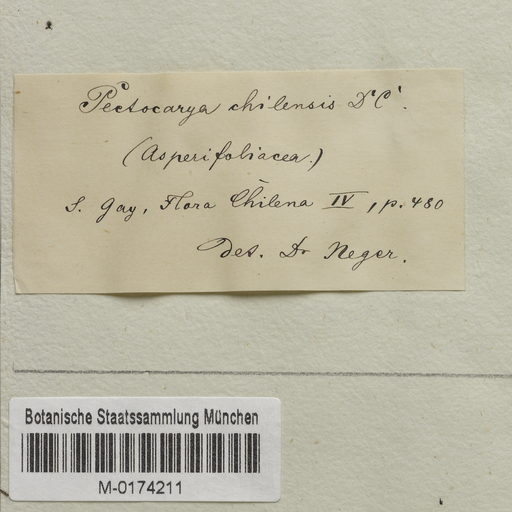 Pectocarya chilensis DC.
(Asperifoliacea.)
S. Gay, Flora Chilena IV, p. 480
Det. Dr Neger.
Botanische Staatssammlung München
M-0174211